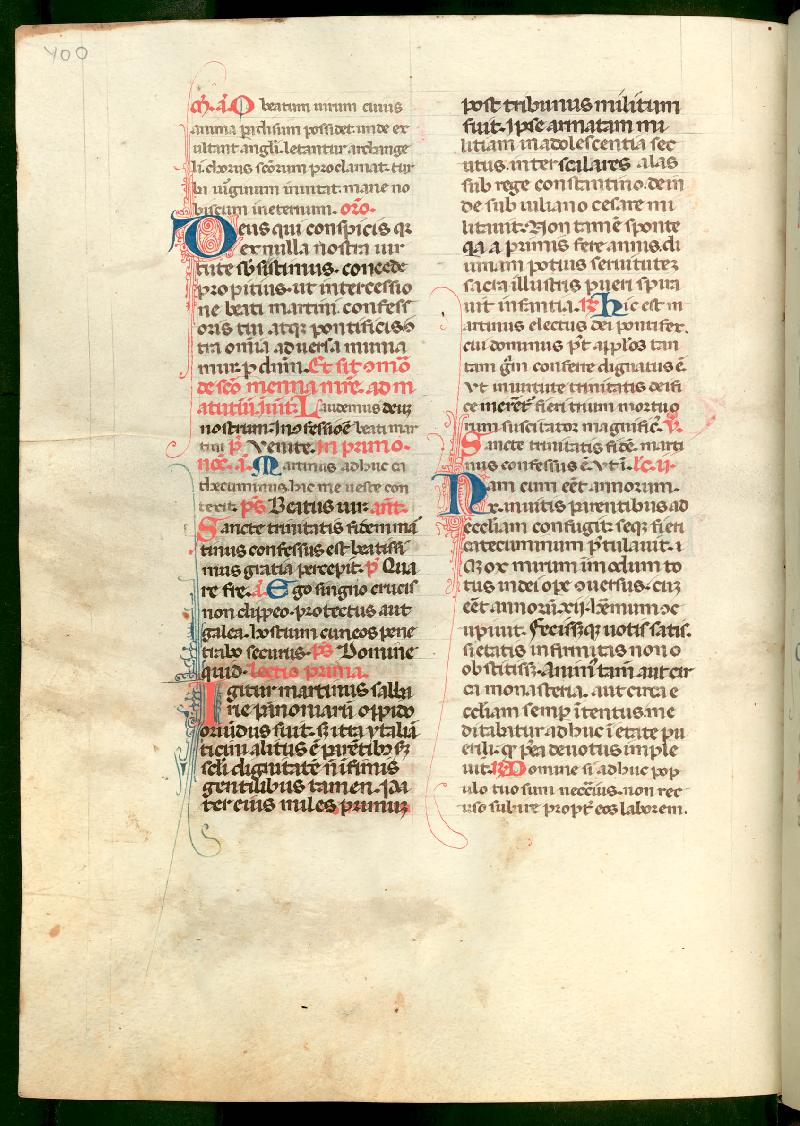 400
m̃. ã. O beatum uirum cuius
anima paradisum possidet. unde ex
ultant angli. letantur archange
li. chorus sc̃orum proclamat. tur
ba uirginum inuitat. mane no
biscum ineternum. or̃o.
Deus qui conspicis q̃
ex nulla nostra uir
tute sb̃sistimus. concede
propitius. ut intercessio
ne beati martini confess
oris tui atq; pontificis
tra om̃ia aduersa munia
mur. p̱ dñm. Et sit
de sc̃o menna mr̃e. ad m
atutiñ. Laudemus deuz
nostrum. In confessioẽ beati mar
tini p̃. Venite. In primo.
noc̃. ã. Martinus adhuc ca
thecuminus. hic me ueste con
texit. p̃s Beatus uir. añt.
Sancte trinitatis fidem ma
tinus confessus est beatissi
mus gratia percepit. p̃ Qua
re fre. ã. Ego singno crucis
non clippeo. protectus aut
galea. hostium cuneos pene
trabo securus. p̃s Domine
quid. lectio prima.
Igitur martinus saba
rie pãnoniarũ oppido
oriundus fuit. sz itta ytalia
ticini alitus ẽ parẽtibꝫ sz
scłi dignitatẽ ñ infimis
gentilibus tamen. Pa
ter eius miles primuz
post tribunus militum
fuit. Ipse armatam mi
litiam in adolescentia sec
utus. inter scilares alas
sub rege constantino. dein
de sub iuliano cesare mi
litauit. Non tamẽ sponte
q̃a a primis fere annis. di
uinam potius seruitutez
sacra illustris pueri spira
uit infantia. R̃ Hic est m
artinus electus dei pontifex.
cui dominus p̃t ap̃plos tan
tam gr̃am conferre dignatus ẽ.
Vt in uirtute trinitatis deifi
ce meret̃ fieri trium mortuo
rum suscitator magnific̃. V̄.
Sancte trinitatis fidẽ. marti
nus confessus ẽ. Vt ĩ. lc̃. ii.
Nam cum eẽt annorum.
x. inuitis parentibus ad
eccliam confugit. seq; fieri
catecuminum p̃tulauit. i
Q; ox mirum ĩm odum to
tus in dei ope conuersus. cuz
eẽt annorũ xij. hẽmum c̃c
upiuit. Fecissq; uotis satis.
si etatis infirmitas non o
bstitissz. Animꝰ tam aut cir
ca monasteria. aut circa e
ccliam semp̱ ĩtentus. me
ditabitur adhuc ĩ etate pu
erili. q̃ p̃ea deuotus imple
uit. R̃ Domine si adhuc pop
ulo tuo sum necc̃ius. non rec
uso subire propt̃ eos laborem.